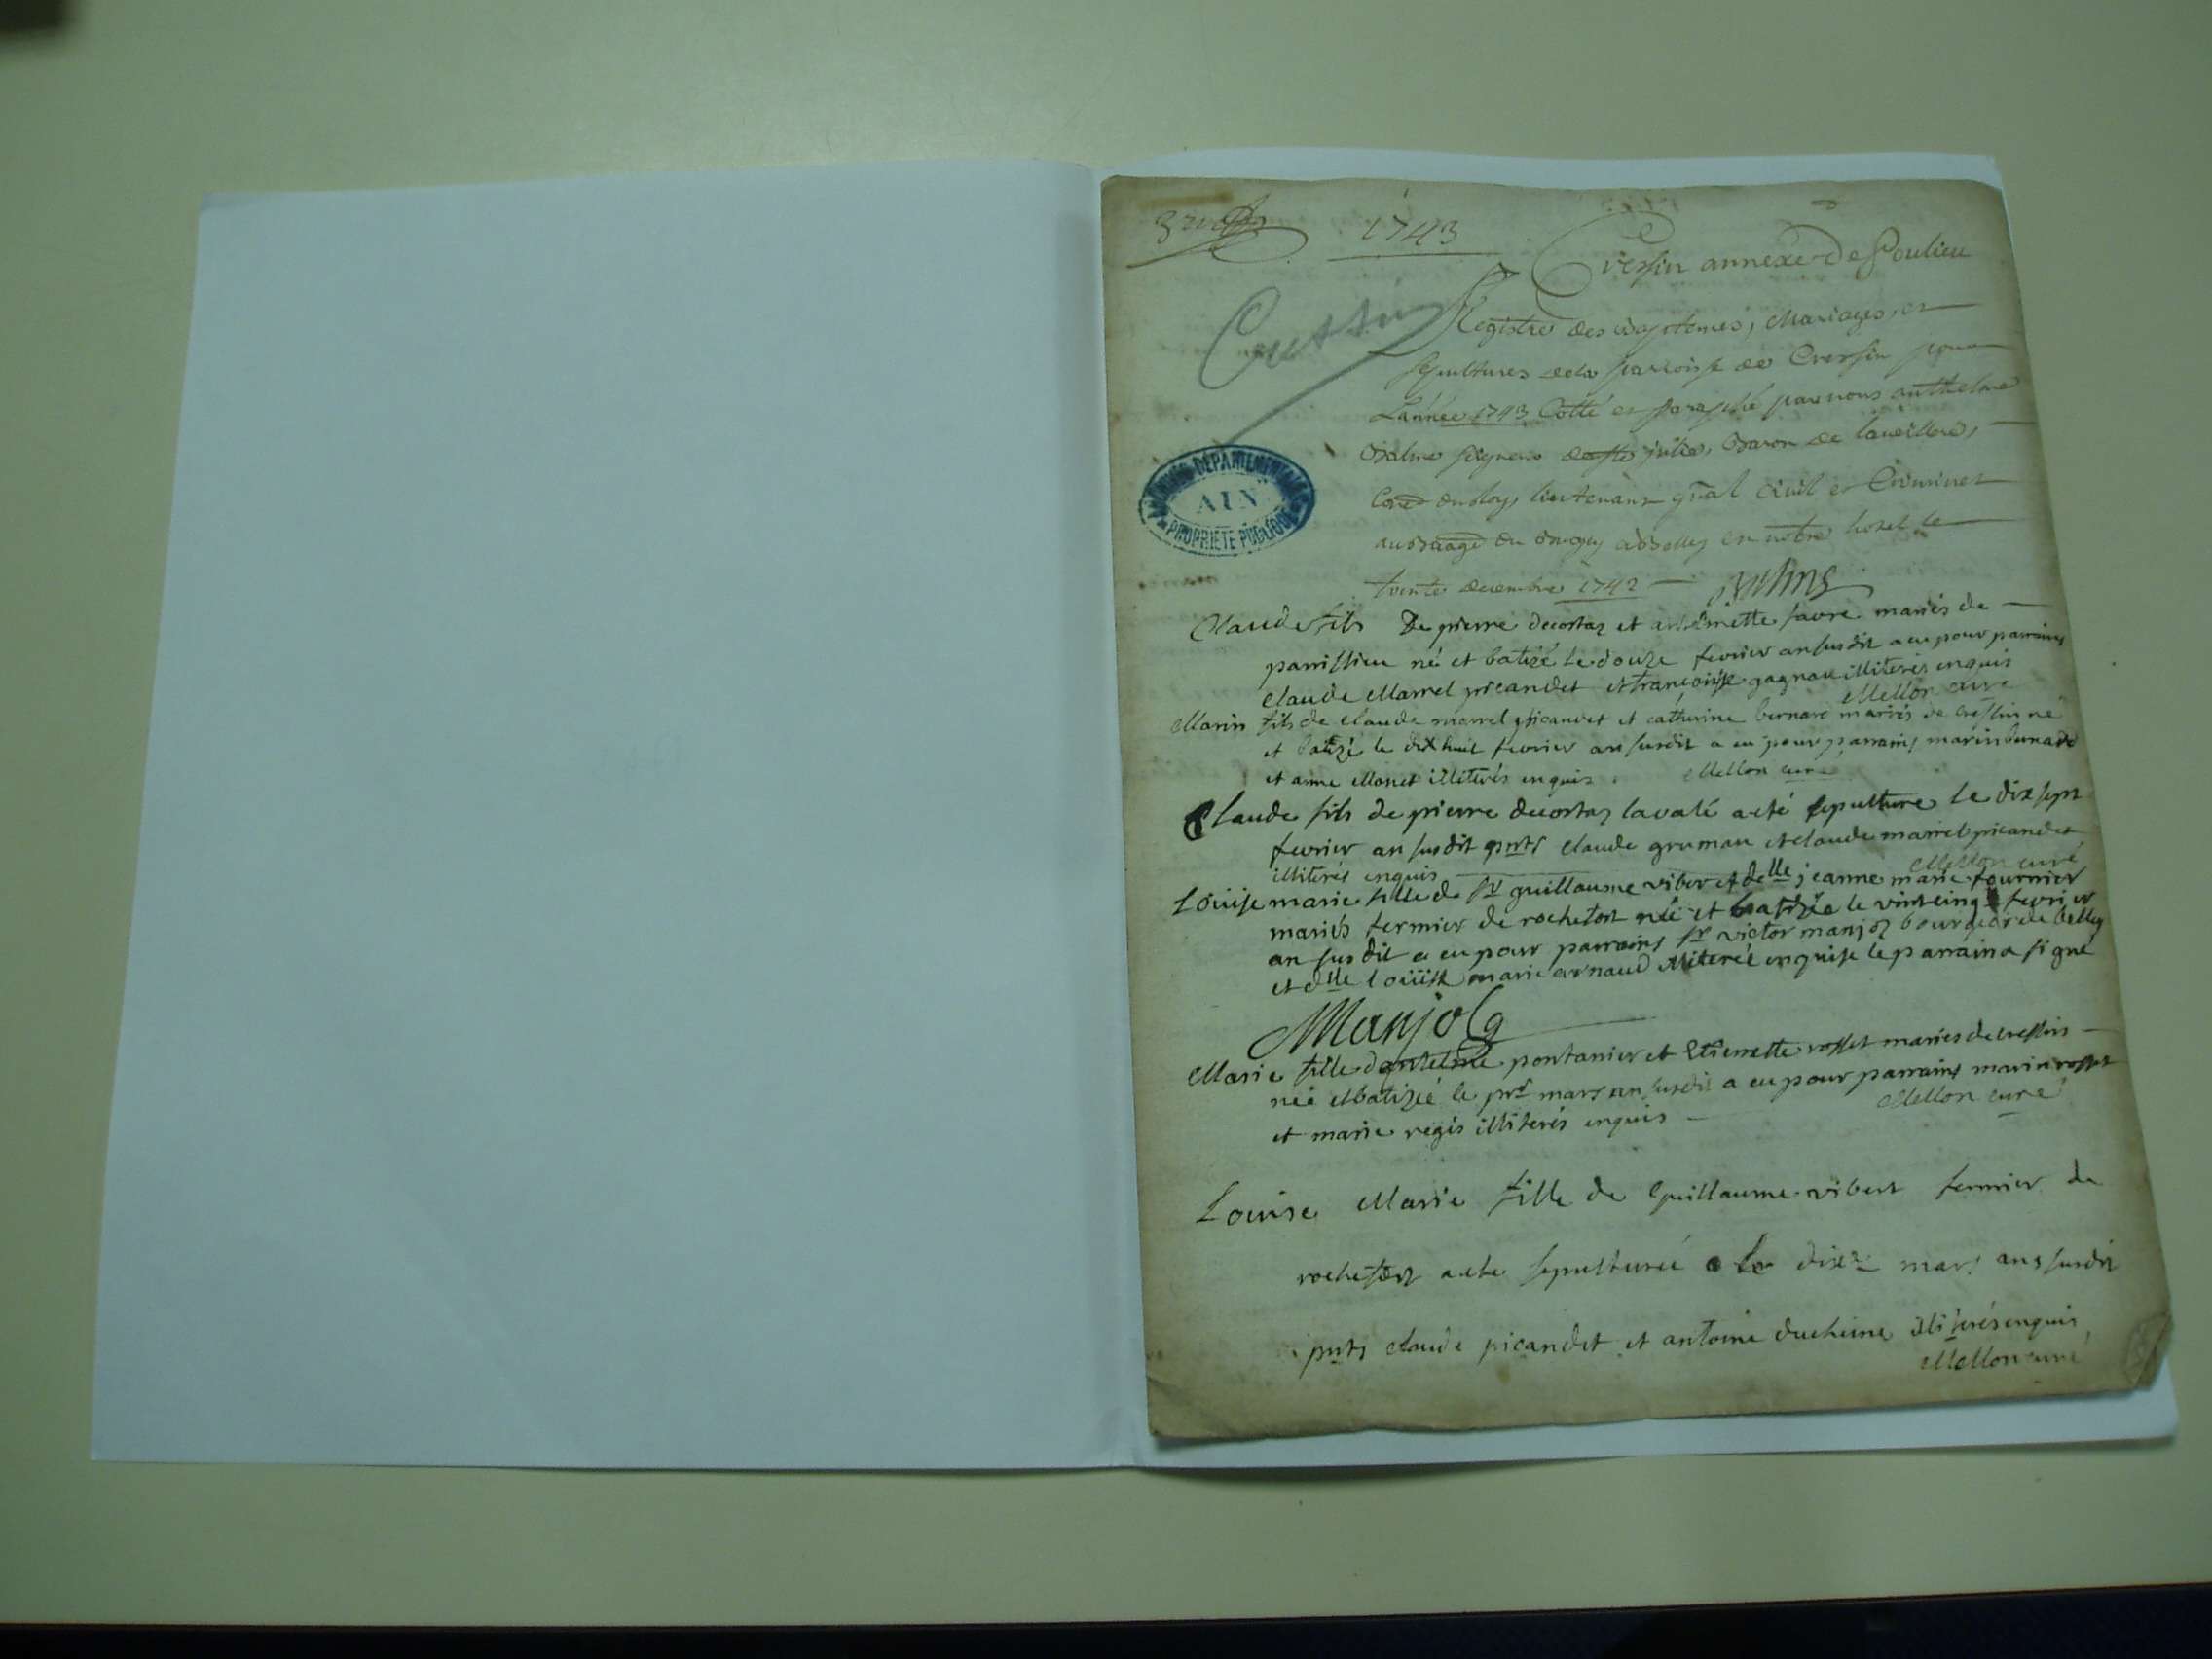 1743
Cressin annexe De Poulieu
Cressin
Registre des Baptemes, Mariages, et
sepultures de la parroisse de Cressin pour
L'année 1743 Cotté et paraphé par nous anthelme
Balme seigneur de ste julie, Baron de
Coner du Roy, lieutenant gñal Civil et Criminel
au Baage du Bugey a Belley en notre hotel le
trente decembre 1742 Balme
ARCHIVES DÉPARTEMENTALES
AIN
PROPRIÉTÉ PUBLIQUE
Claude fils De pierre decortaz et antelmette favre mariés de
parrissieu né et batizé le douze fevrier an susdit a eu pour parrains
Claude Marrel picandet et francoise gagnau illiterés enquis
Mellon curé
Marin fils de claude marrel picandet et catherine bernard mariés de cressin né
et batizé le dix huit fevrier an susdit a eu pour parrains marin bernard
et anne Monet illiterés enquis. Mellon curé
Claude fils de pierre decortaz lavalé a eté sepulturé le dix sept
fevrier an susdit pnts claude gruman et claude marrel picandet
illiterés enquis Mellon curé
Louise marie fille de sr guillaume viber et delle jeanne marie fournier
mariés fermier de rochefort née et batizée le vint cinq fevrier
an susdit a eu pour parrains sr victor manjoz bourgeois de belley
et dlle louise marie arnaud illiterée enquise le parrain a signé
Manjoz
Marie fille d'antelme pontanier et Etienette rosset mariés de cressin
née et batizée le pr mars an susdit a eu pour parrains marin rosset
et marie regis illiterés enquis Mellon curé
Louise Marie fille de guillaume vibert fermier de
rochefort a eté sepulturée le dixe mars an susdit
pnts claude picandet et antoine duchene illiterés enquis
Mellon curé